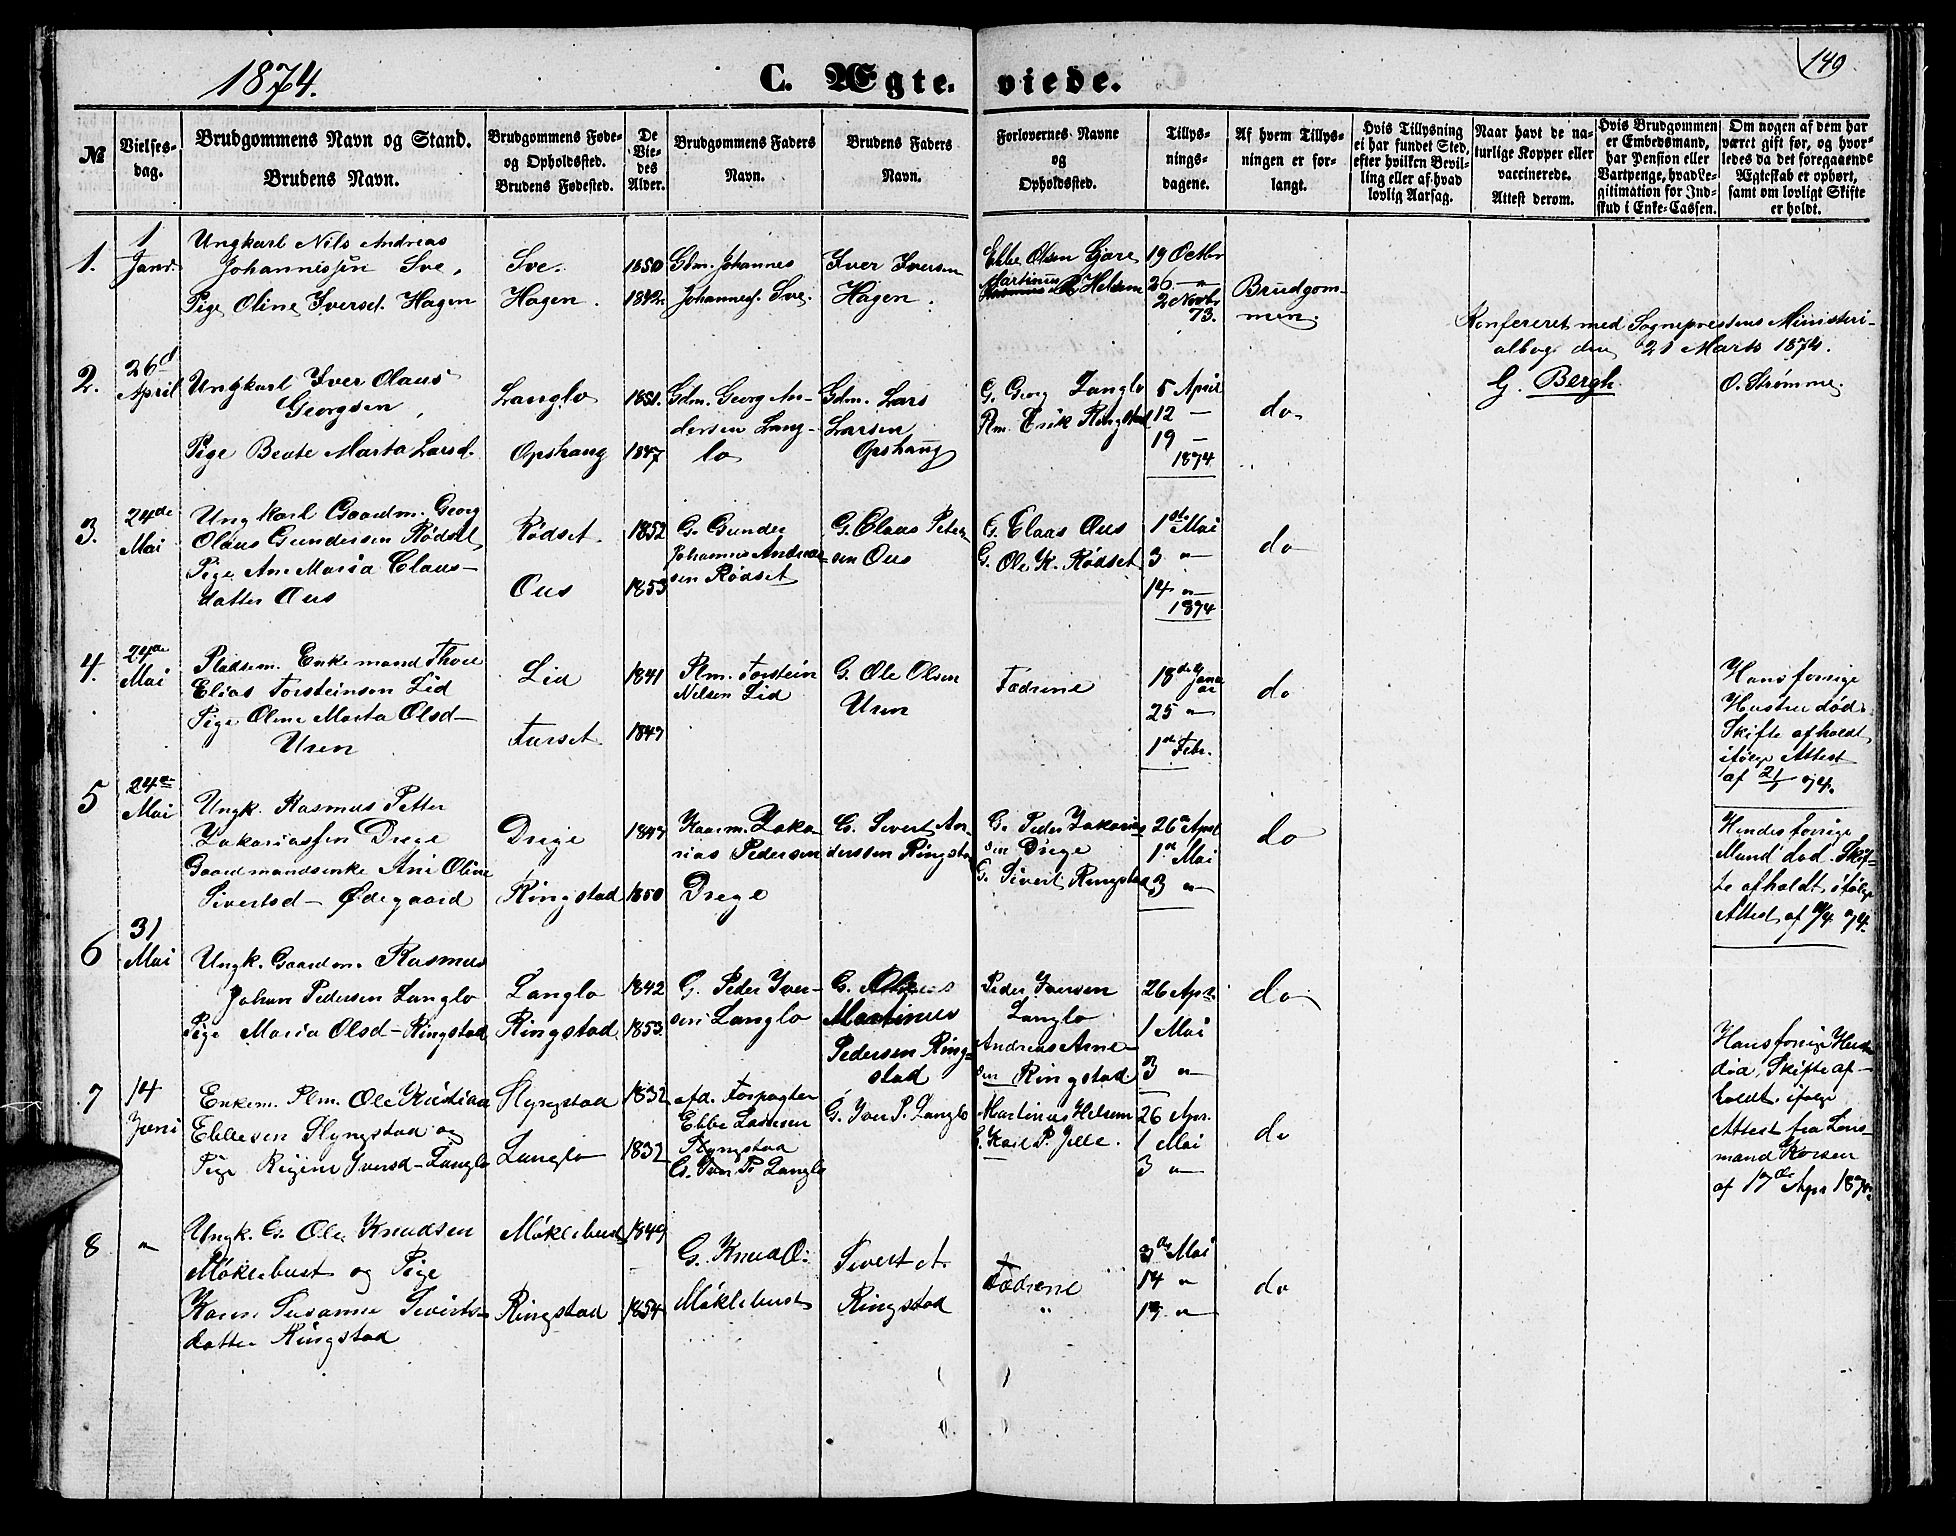 1874.
C. Ægte-viede.
149
№
Vielses-
dag.
Brudgommens Navn og Stand.
Brudens Navn.
Brudgommens Føde-
og Opholdssted.
Brudens Fødested.
De
Vie-
des
Alder.
Brudgommens Faders
Navn.
Brudens Faders
Navn.
Forlovernes Navne
og
Opholdssted.
Tillys-
nings-
dagene.
Af hvem Tillys-
ningen er for-
langt.
Hvis Tillysning
ei har fundet Sted,
efter hvilken Bevil-
ling eller af hvad
lovlig Aarsag.
Naar havt de na-
turlige Kopper eller
vaccinerede.
Attest derom.
Hvis Brudgommen
er Embedsmand,
har Pension eller
Vartpenge, hvad Le-
gitimation for Ind-
skud i Enke-Cassen.
Om nogen af dem har
været gift før, og hvor-
ledes da det foregaaende
Ægteskab er ophørt,
samt om lovligt Skifte
er holdt.
1.
1
Janr.
Ungkarl Nils Andreas
Johannessen Sve,
Pige Oline Iversd. Hagen
Sve.
Hagen.
1850
1842.
Gdm. Johannes
Johannes. Sve.
Iver Iversen
Hagen.
Ebbe Olsen Gjære
Martinus Helsem
19 Octbr
26 — "
2 Novbr
73.
Brudgom-
men.
Konfereret med Sogneprestens Ministeri-
albog den 21 Marts 1874.
G. Bergh
O. Strømme.
2.
26d
April
Ungkarl Iver Olaus
Georgsen,
Pige Beate Marta Larsd.
Langlo
Opshaug
1851.
1847
Gdm. Georg An-
dersen Lang-
lo
Gdm. Lars
Larsen
Opshaug
G. Georg Langlo
Plm. Erik Ringstad
5 April
12 —
19 —
1874
do
3.
24de
Mai
Ungkarl Gaardm. Georg
Olaus Gundersen Rødset
Pige Ane Maria Claus-
datter Ous
Rødset
Ous
1852
1853
G. Gunder
Johannes Andreas-
sen Rødset
G. Claas Peter-
sen Ous
G. Claas Ous
G. Ole K. Rødset
1de Mai
3 "
14 "
1874
do
4.
24de
Mai
Pladsm. Enkemand Thore
Elias Torsteinsen Lid
Pige Oline Marta Olsd—
Uren
Lid
Furset
1841
1849
Plm. Torstein
Nilsen Lid
G. Ole Olsen
Uren
Fædrene
18de Janu
ar
25 "
1de Febr.
do
Hans forrige
Hustru død.
Skifte afholdt
ifølge Attest
af 21/1 74.
5
24de
Mai
Ungk. Rasmus Petter
Zakariassen Drege
Gaardmandsenke Ane Oline
Sivertsd— Ødegaard
Drege
Ringstad
1849
1850
Kaarm. Zaka-
rias Pedersen
Drege
G. Sivert An-
derssen Ringstad
G. Peder Zakarias
sen Drege
G. Sivert Ringstad
26de April
1de Mai
3 "
do
Hendes forrige
Mand død. Skif-
te afholdt ifølge
6
31
Mai
Ungk. Gaardm. Rasmus
Johan Pedersen Langlo
Pige Maria Olsd— Ringstad
Langlo
Ringstad
1842
1853
G. Peder Iver-
sen Langlo
G.
Martinus
Pedersen Ring-
stad
Peder Iversen
Langlo
Andreas Arne-
sen Ringstad
26 Apr.
1 Mai
3 "
do
7
14
Juni
Enkem. Plm. Ole Kristian
Ebbesen Slyngstad og
Pige Regine Iversd— Langlo
Slyngstad
Langlo
1832
1832
Ebbe Larsen
Slyngstad
G. Iver P. Langlo
G. Iver P. Langlo
Martinus Helsem
G. Karl P. Jelle.
26 Apr.
1 Mai
3 "
do
Hans forrige Hust
død, Skifte af-
holdt ifølge
Attest fra Lens-
mand Korsen
af 17de Apr 187
8
"
Ungk. G. Ole Knudsen
Møklebust og Pige
Karen Susanne Siverts-
datter Ringstad
Møklebust
Ringstad
1849
1854
G. Knud O.
Møklebust
Sivert A.
Ringstad
Fædrene
"
3de Mai
14 "
do